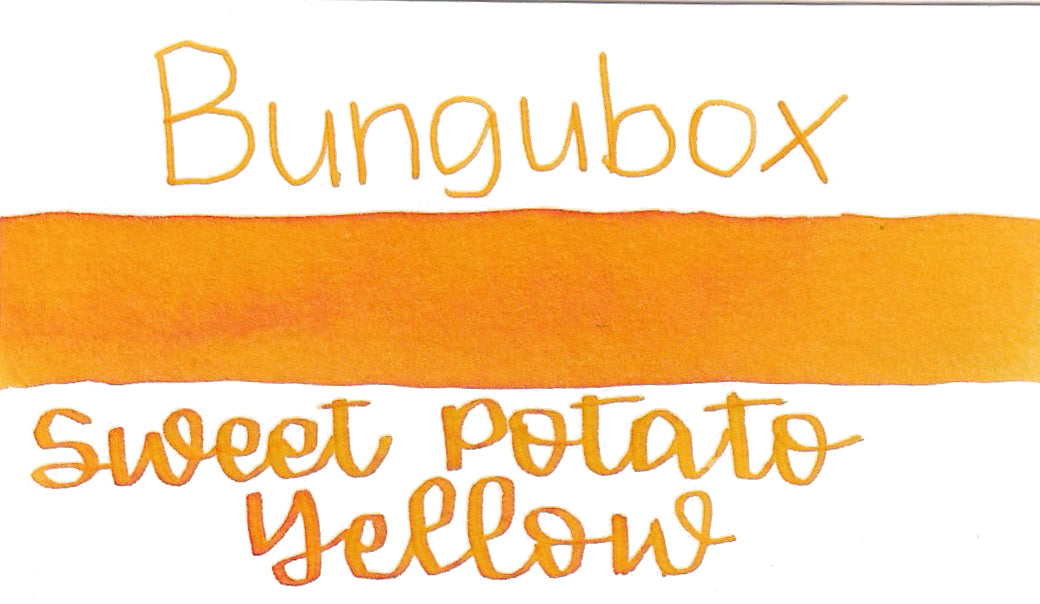 Bungubox
Sweet Potato
Yellow